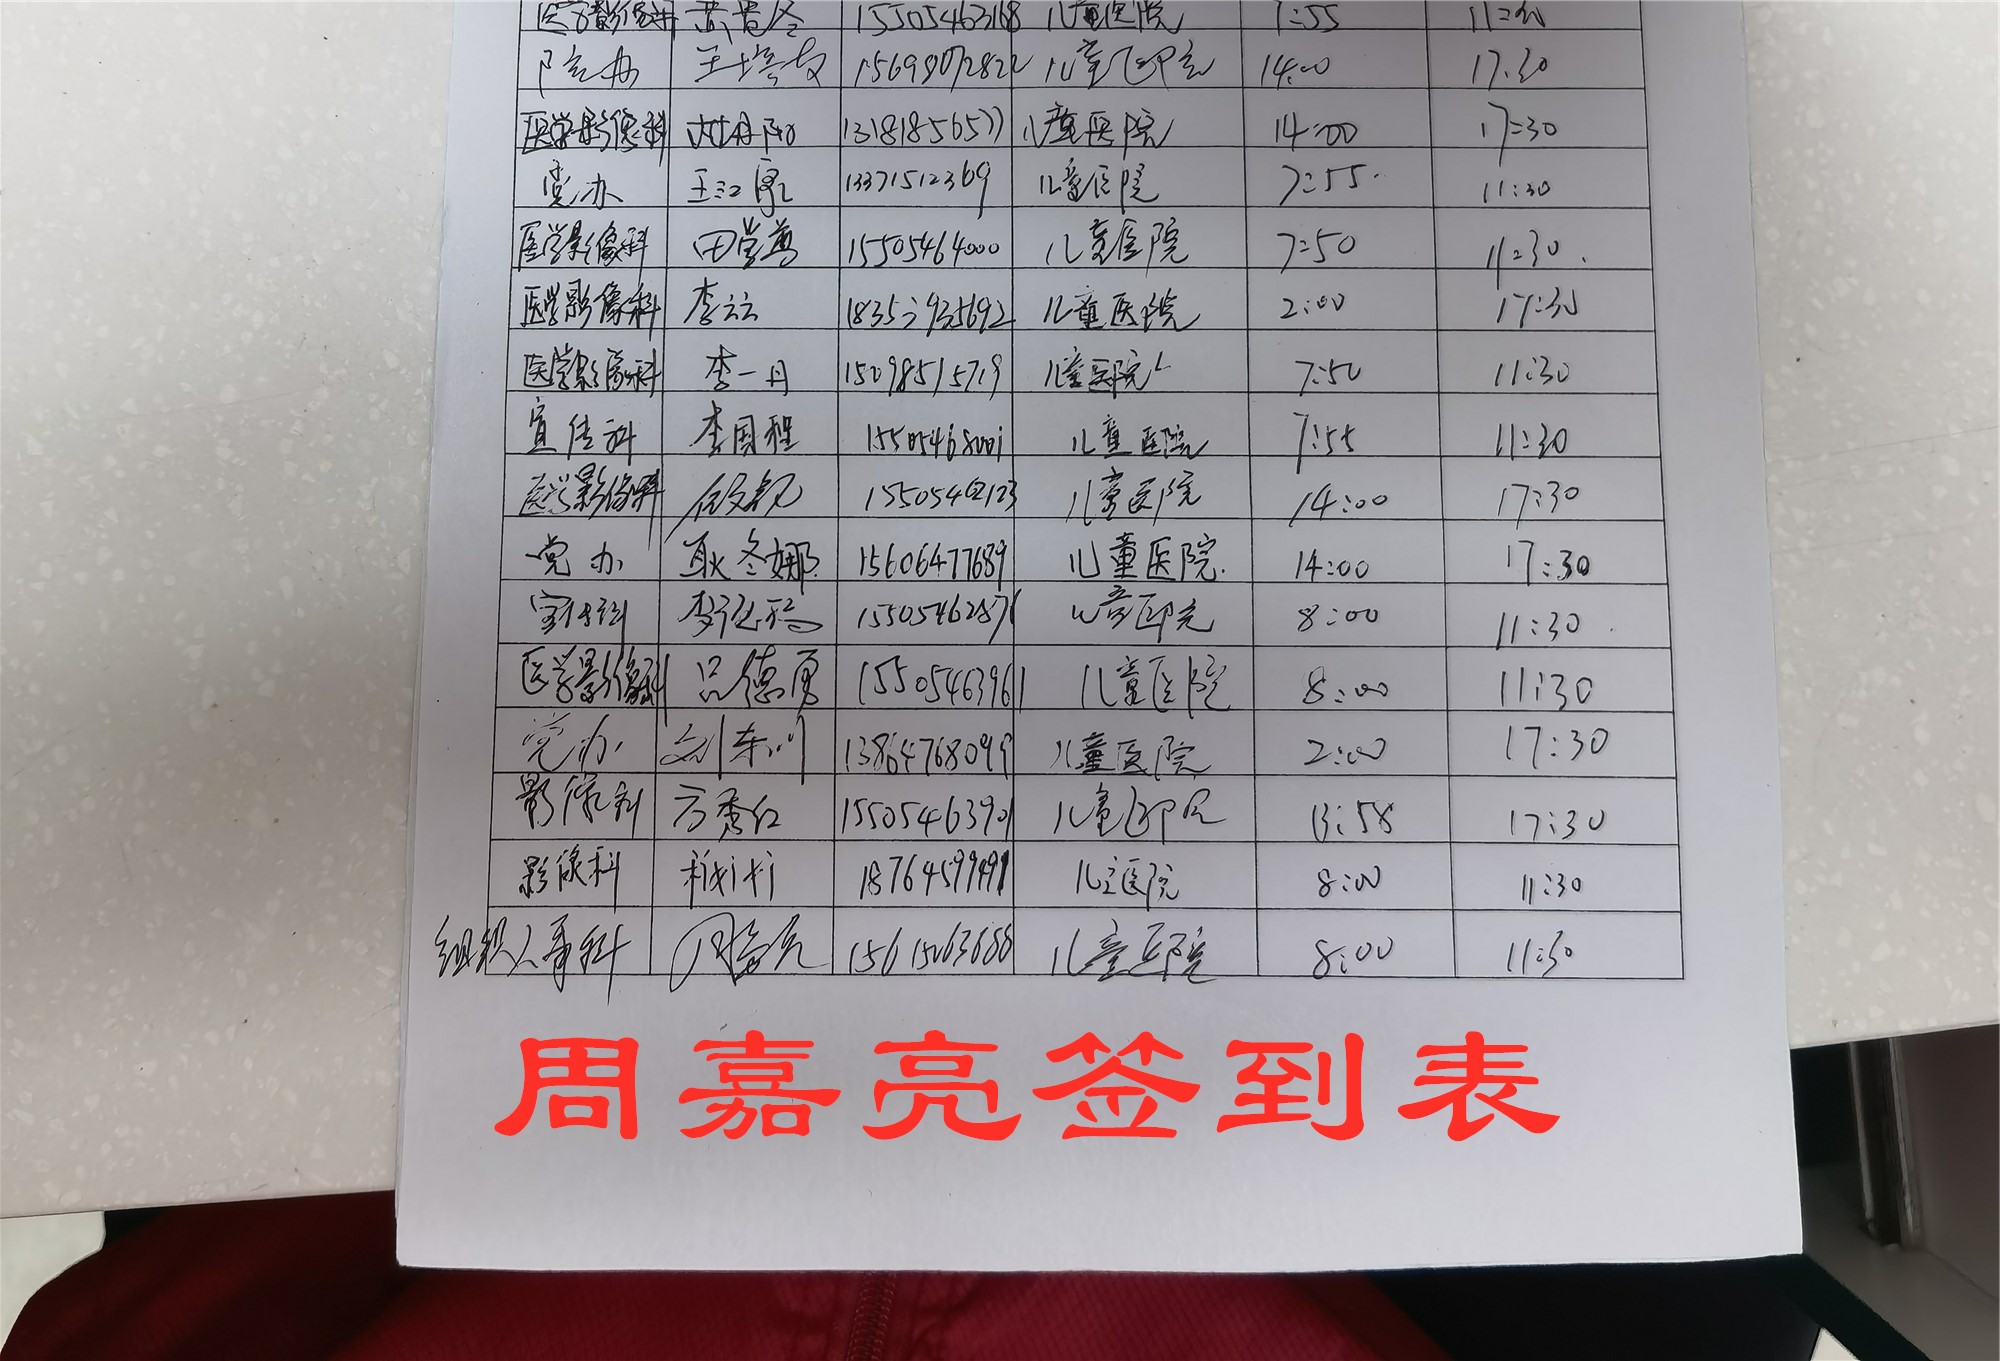 医学影像科 黄 15505463168 儿童医院 7:55 11:30
院办 王培文 15698072822 儿童医院 14:00 17:30
医学影像科 杜丹阳 儿童医院 14:00 17:30
党办 王江 13371512369 儿童医院 7:55 11:30
医学影像科 田学尊 15505464000 儿童医院 7:50 11:30
医学影像科 李云云 儿童医院 2:00 17:30
医学影像科 李一丹 15098515719 儿童医院 7:50 11:30
宣传科 李国程 15505468001 儿童医院 7:55 11:30
医学影像科 15505462123 儿童医院 14:00 17:30
党办 耿冬娜 15606477689 儿童医院 14:00 17:30
宣传科 李 15505462871 儿童医院 8:00 11:30
医学影像科 吕德勇 15505463961 儿童医院 8:00 11:30
党办 刘东川 13864768099 儿童医院 2:00 17:30
影像科 方秀红 15505463901 儿童医院 13:58 17:30
影像科 18764599491 儿童医院 8:00 11:30
组织人事科 周嘉亮 15615063688 儿童医院 8:00 11:30
周嘉亮签到表